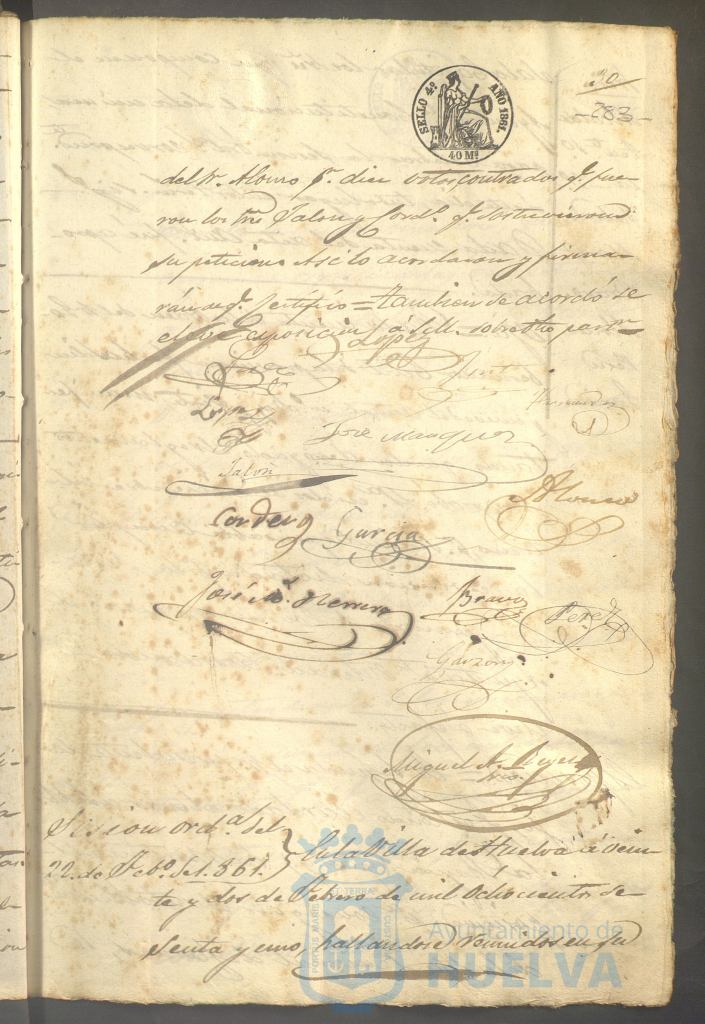 SELLO 4º AÑO 1861.
40 Ms
30
-283-
del Sr. Alonso pr. diez votos contrados qe. fue-
ron los Sres. Jalon y Cord.º qe. sostuvieron
su peticion. Asi lo acordaron y firma-
rán de qe. Certifico = tambien se acordó se
eleve Exposicion á S.M. sobre
Lopez
Lopez
Fernandez
José Marquez
Jalon
Alonso
Cordero
Garcia
José Mª. Herrera
Bravo
Perez
Garzon
Miguel A. Reyes
Srio.
Sesion ord.ª del
22 de Feb.º de 1.861.
En la Villa de Huelva á vein-
te y dos de Febrero de mil Ochocientos se-
senta y uno, hallandose reunidos en su
PORTUS MARIS ET TERRAE CUSTODIA
Ayuntamiento de
HUELVA